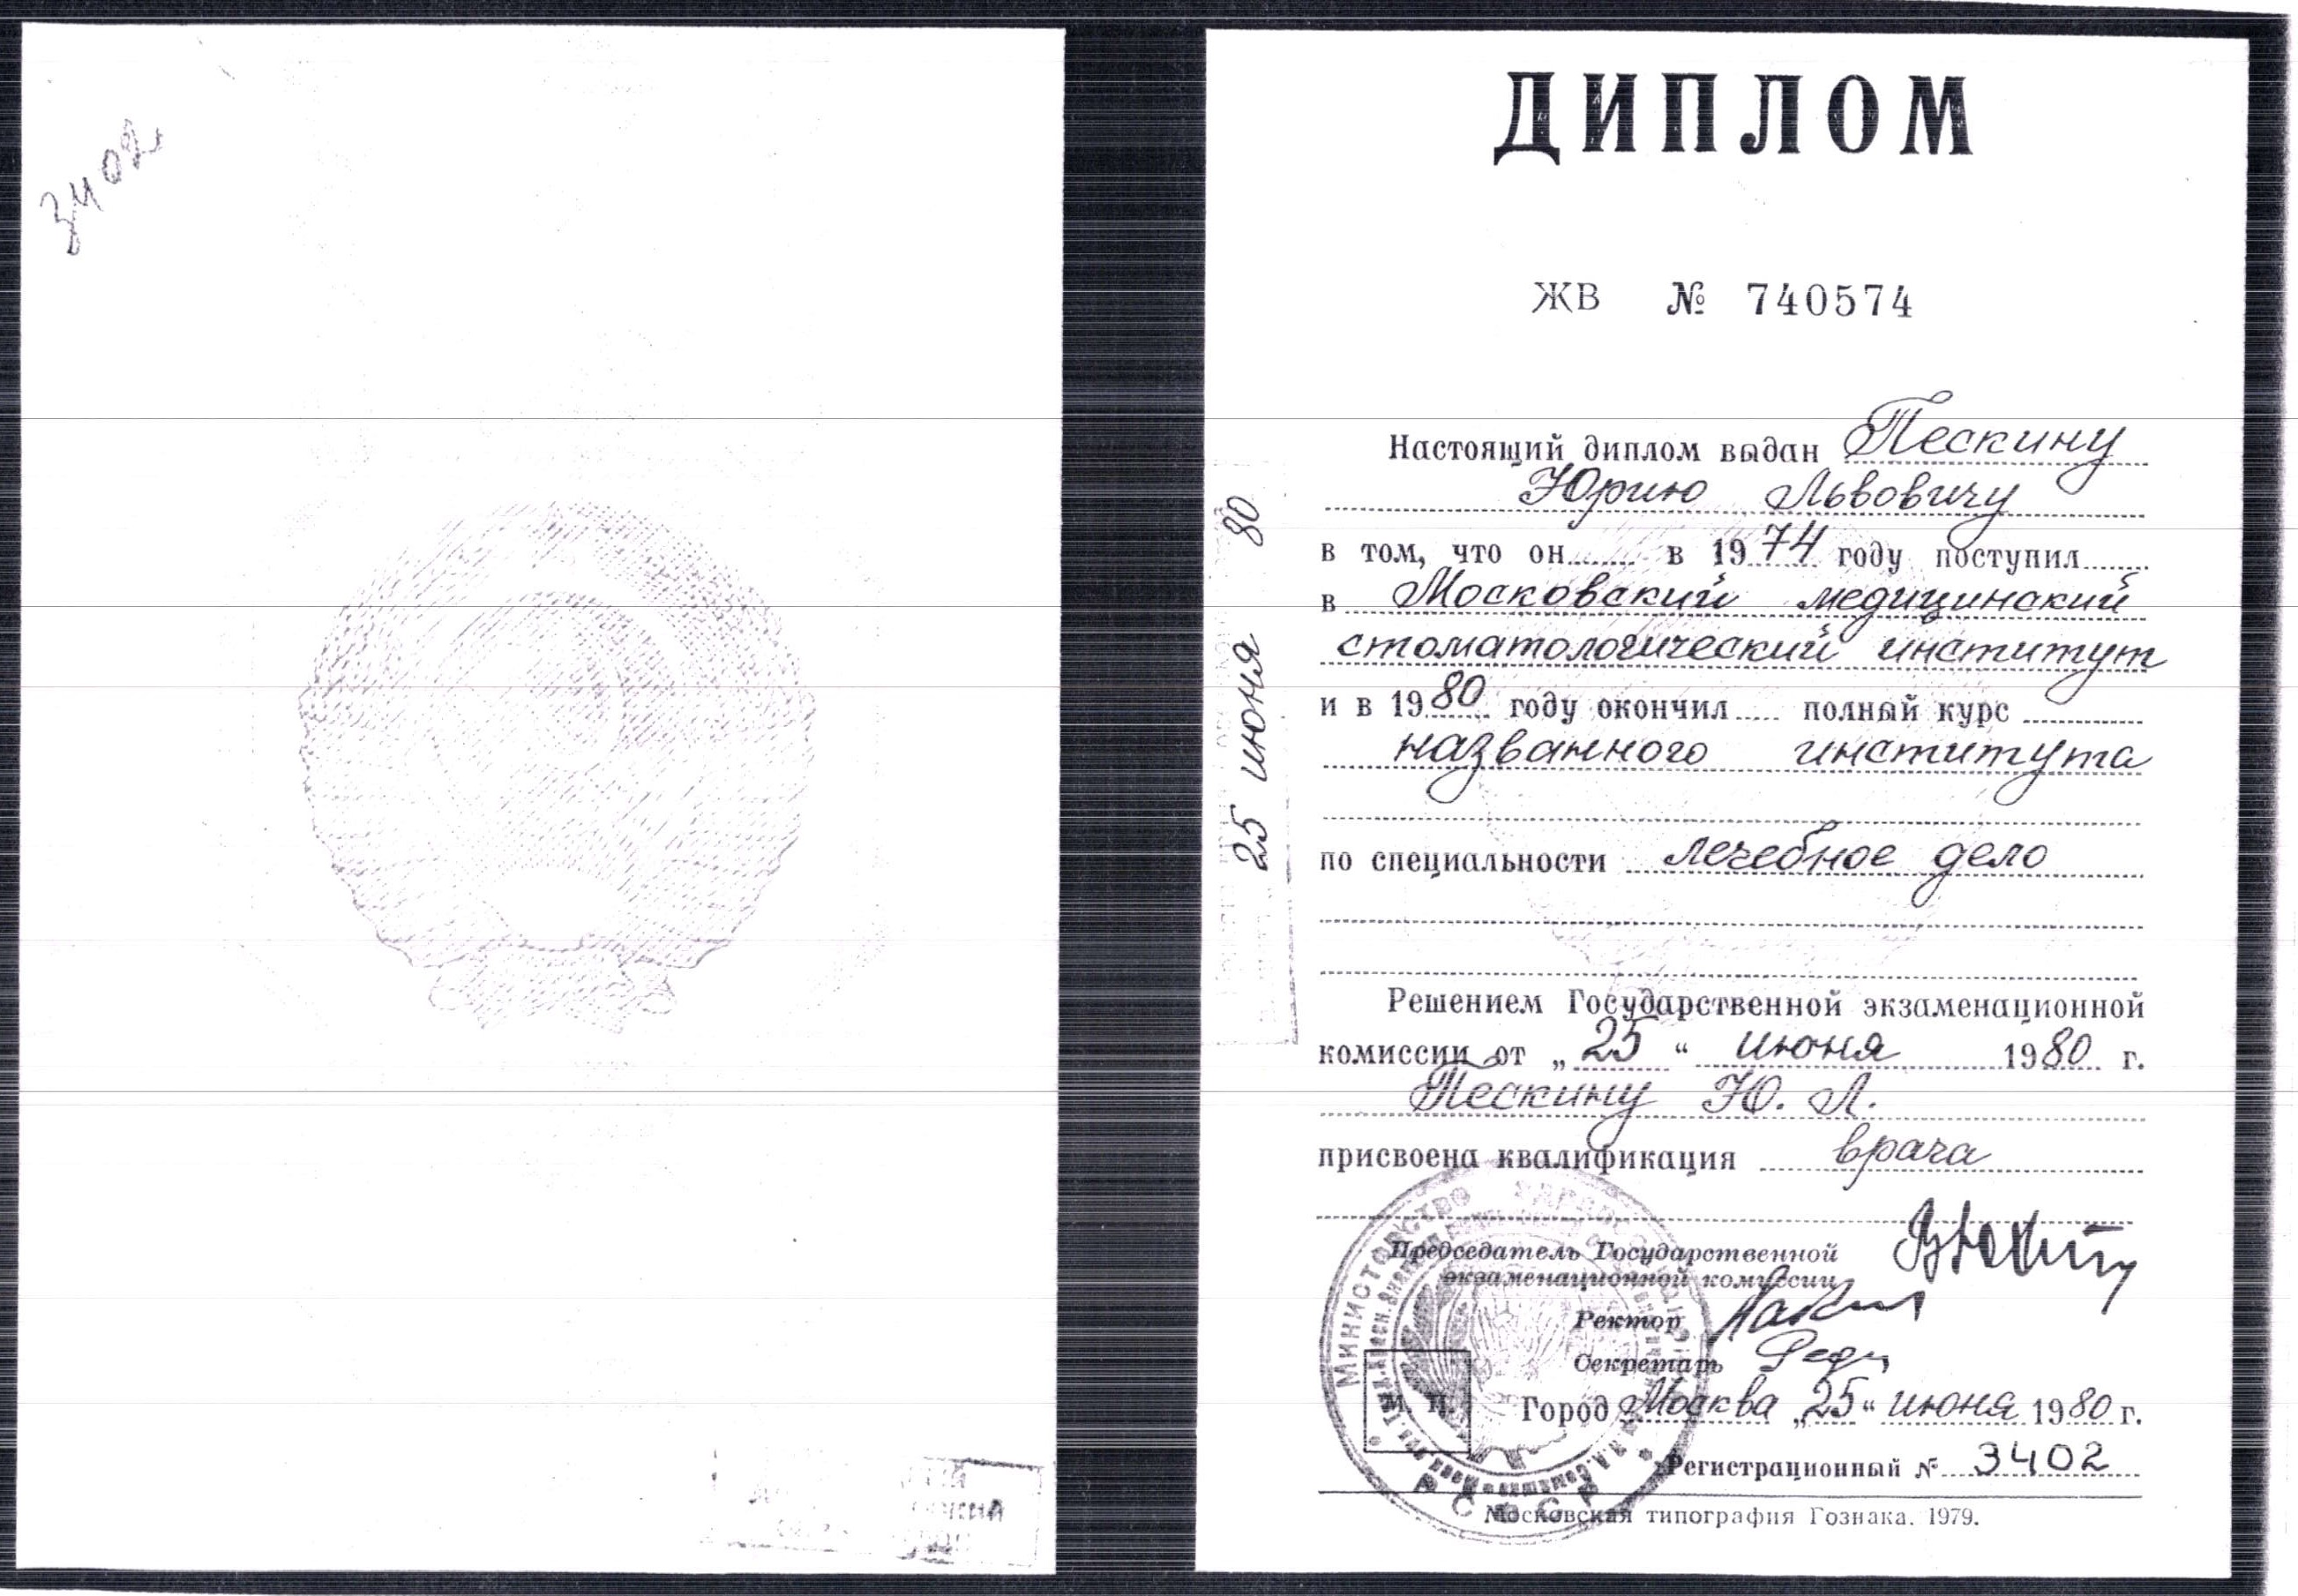 3402
ДИПЛОМ
ЖВ № 740574
Настоящий диплом выдан Пескину
Юрию Львовичу
в том, что он в 1974 году поступил
в Московский медицинский
стоматологический институт
и в 1980 году окончил полный курс
названного института
по специальности лечебное дело
Решением Государственной экзаменационной
комиссии от „25“ июня 1980 г.
Пескину Ю. Л.
присвоена квалификация врача
Председатель Государственной
экзаменационной комиссии
Ректор
Секретарь
М. П.
Город Москва „25“ июня 1980 г.
Регистрационный № 3402
Московская типография Гознака. 1979.
25 июня 80
МИНИСТЕРСТВО
РСФСР